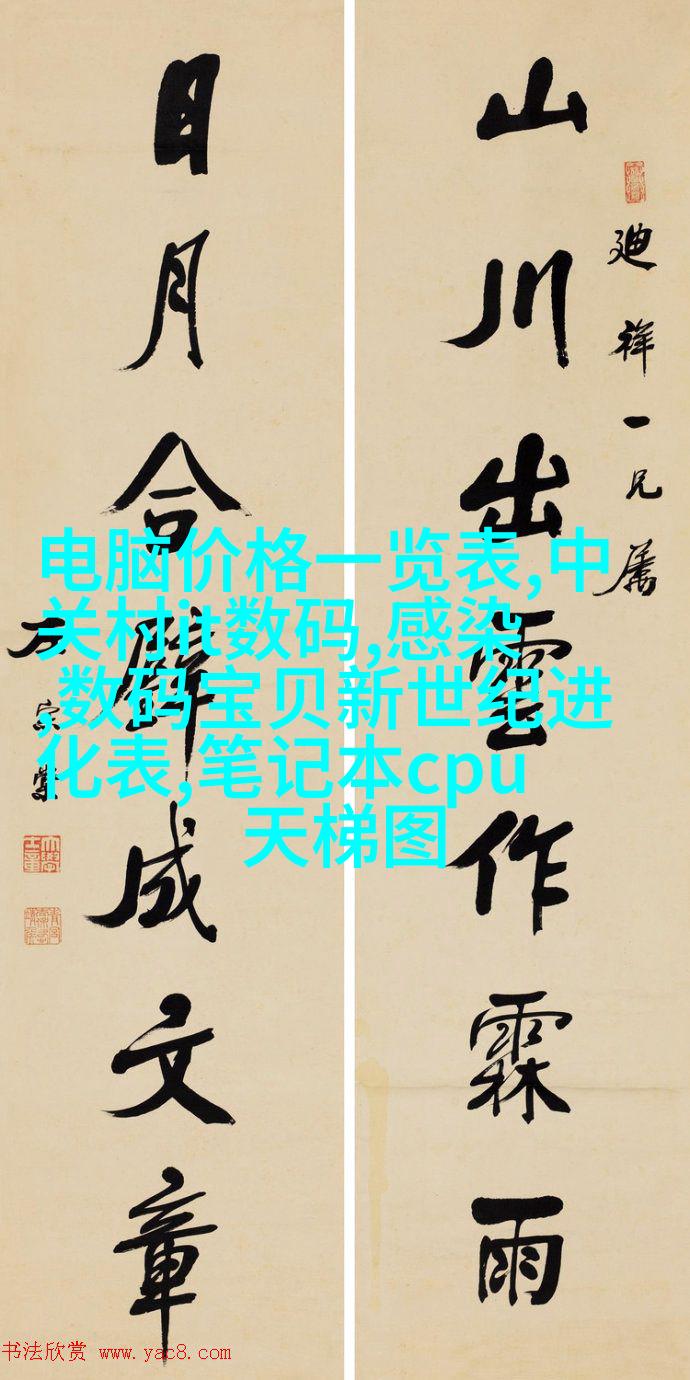 山川出雲作霖雨
廸祥一兄属
日月合璧成文章
电脑价格一览表,中
关村it数码,感染
,数码宝贝新世纪进
化表,笔记本cpu
天梯图
书法欣赏 www.yac8.com